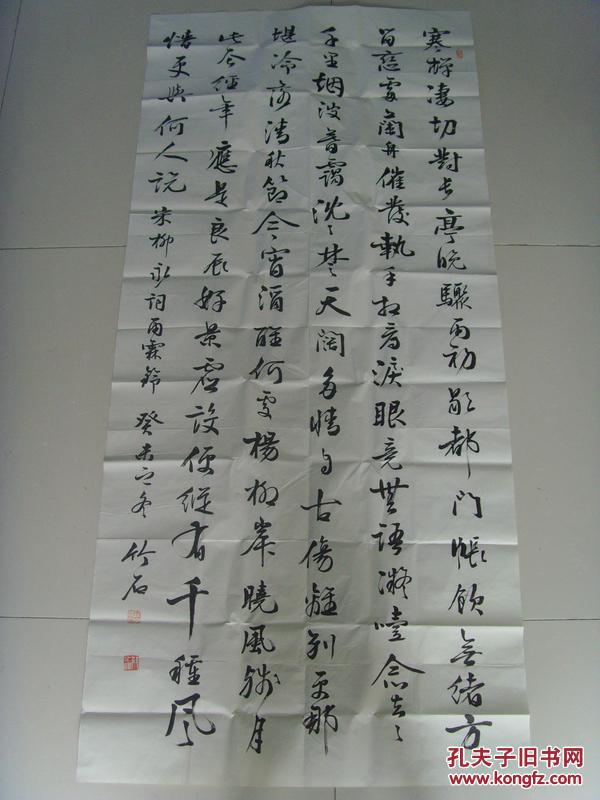 寒蝉凄切對长亭晚驟雨初歇都門帳飲無緒方
留戀處蘭舟催發執手相看淚眼竟無語凝噎念去々
千里烟波暮靄沈々楚天闊多情自古傷離别更那
堪冷落清秋節今宵酒醒何處楊柳岸曉風残月
此去經年應是良辰好景虚設便縱有千種風
情更與何人說 宋柳永詞雨霖鈴 癸未之冬 竹石
孔夫子旧书网
www.kongfz.com